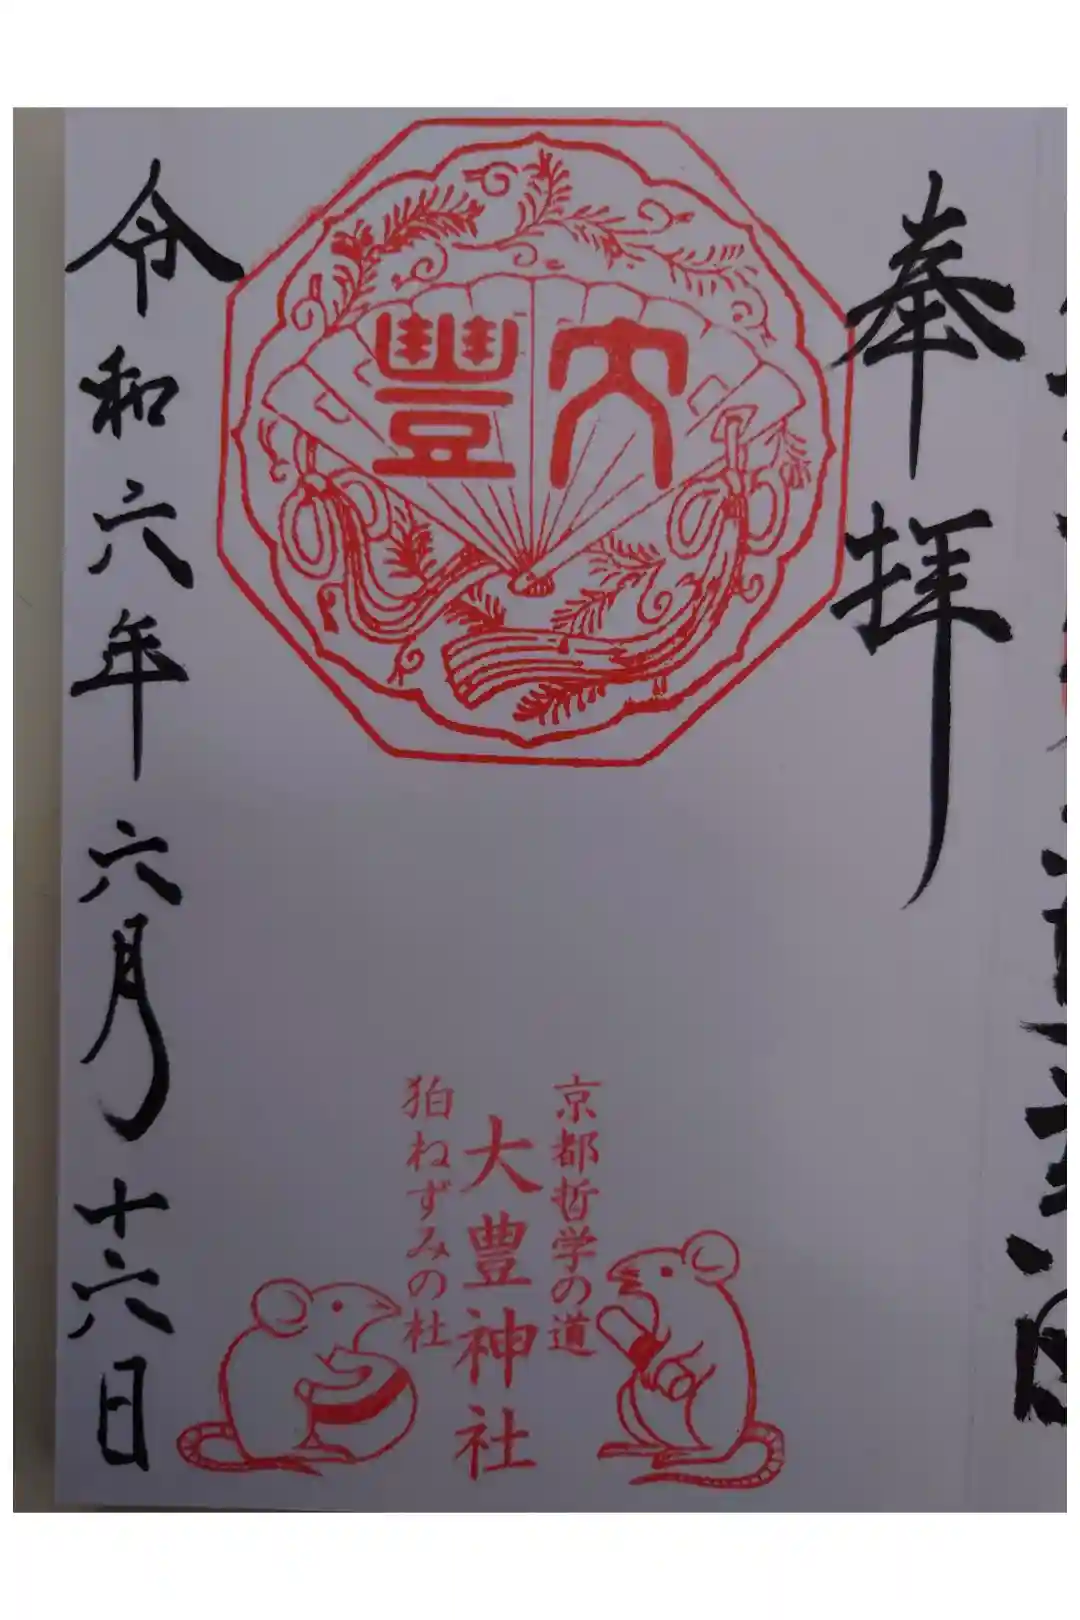 奉拝
大豐
京都哲学の道
大豊神社
狛ねずみの杜
令和六年六月十六日